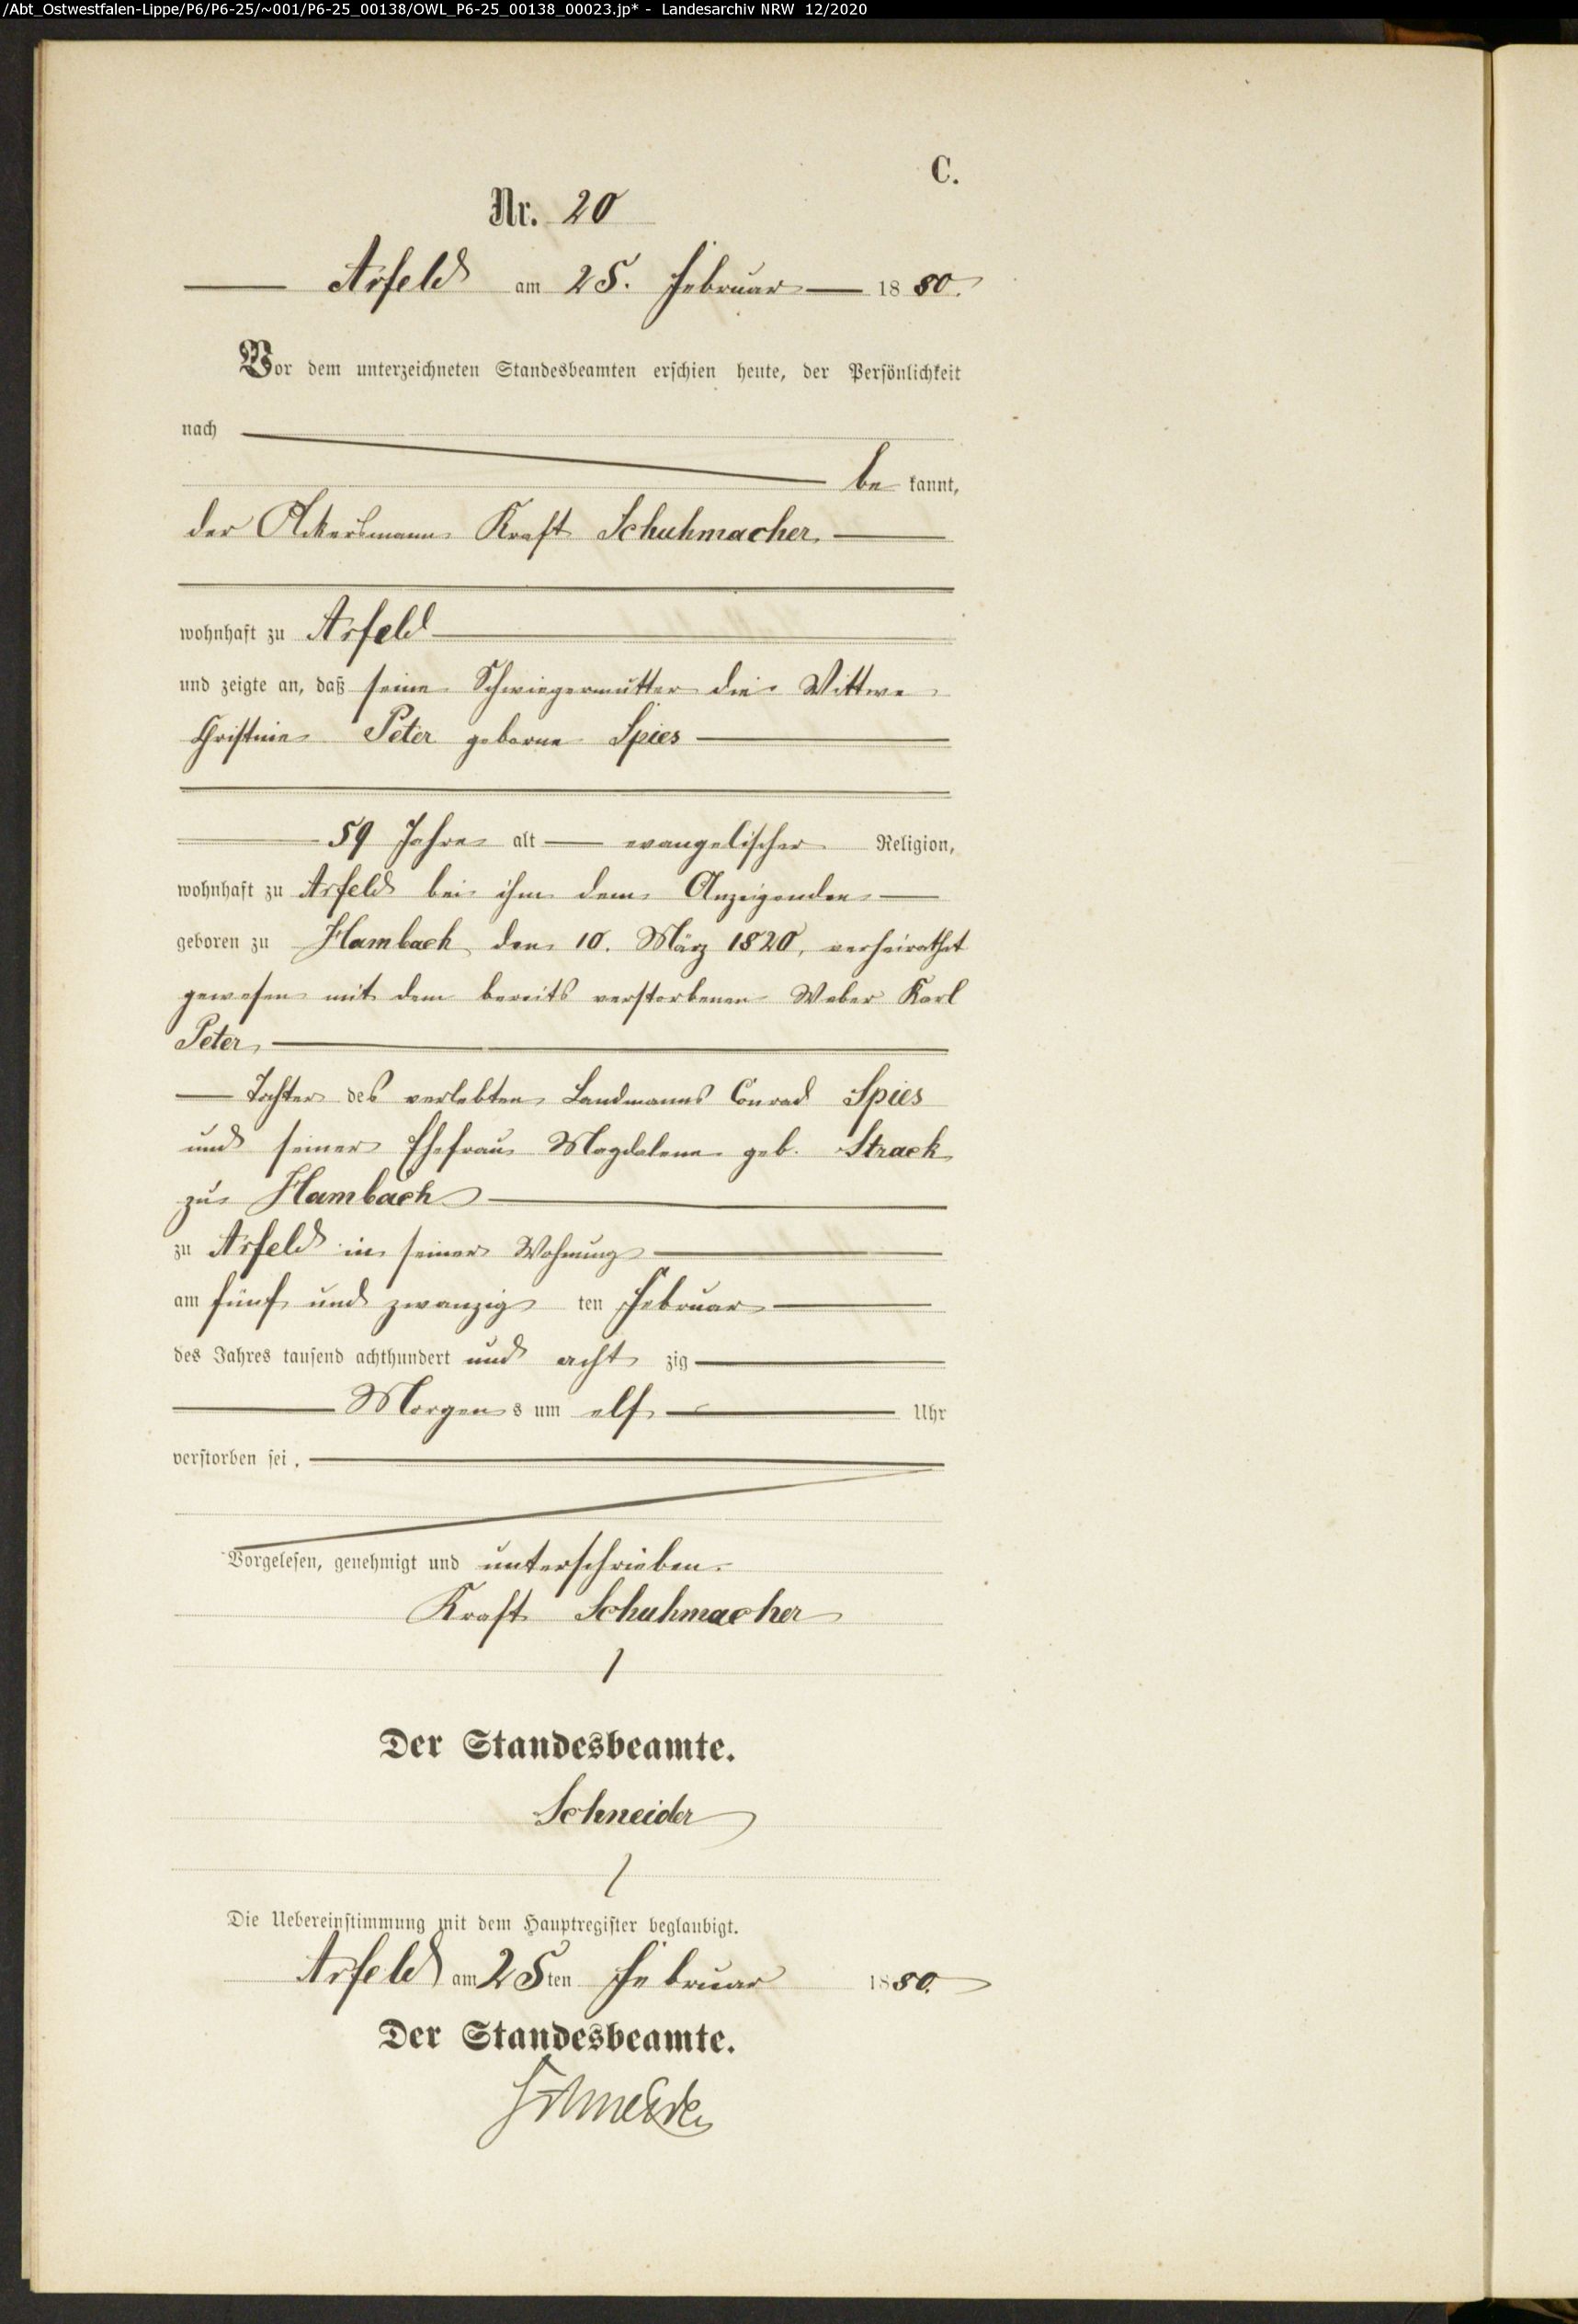 /Abt_Ostwestfalen-Lippe/P6/P6-25/~001/P6-25_00138/OWL_P6-25_00138_00023.jp* - Landesarchiv NRW 12/2020
C.
Nr. 20
Arfeld am 25. Februar 1880.
Vor dem unterzeichneten Standesbeamten erschien heute, der Persönlichkeit
nach
be kannt,
der Ackersmann Kraft Schuhmacher
wohnhaft zu Arfeld
und zeigte an, daß seine Schwiegermutter die Wittwe
Christine Peter geborne Spies
59 Jahre alt evangelischer Religion,
wohnhaft zu Arfeld bei ihm dem Anzeigenden
geboren zu Hambach den 10. März 1820, verheirathet
gewesen mit dem bereits verstorbenen Weber Karl
Peter,
Tochter des verlebten Landmanns Conrad Spies
und seiner Ehefrau Magdalena geb. Strack
zu Hambach
zu Arfeld in seiner Wohnung
am fünf und zwanzig ten Februar
des Jahres tausend achthundert und acht zig
Morgens um elf Uhr
verstorben sei.
Vorgelesen, genehmigt und unterschrieben.
Kraft Schuhmacher
Der Standesbeamte.
Schneider
Die Uebereinstimmung mit dem Hauptregister beglaubigt.
Arfeld am 25ten Februar 1880.
Der Standesbeamte.
Schneider